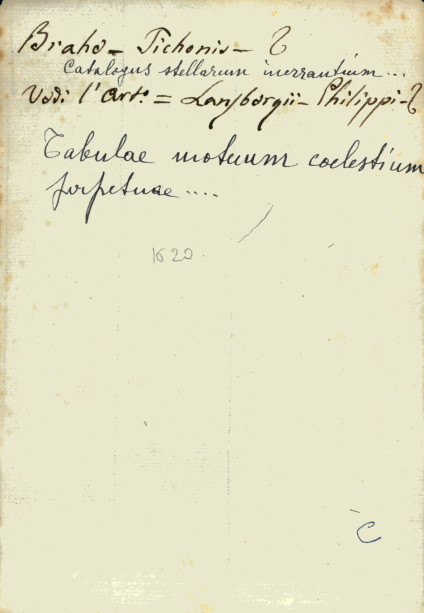 Brahe - Tichonis - T
Catalogus stellarum inerrantium...
Vedi l'art.o = Lansbergii - Philippi - T
Tabulae motuum coelestium
perpetuae ....
1620.
C